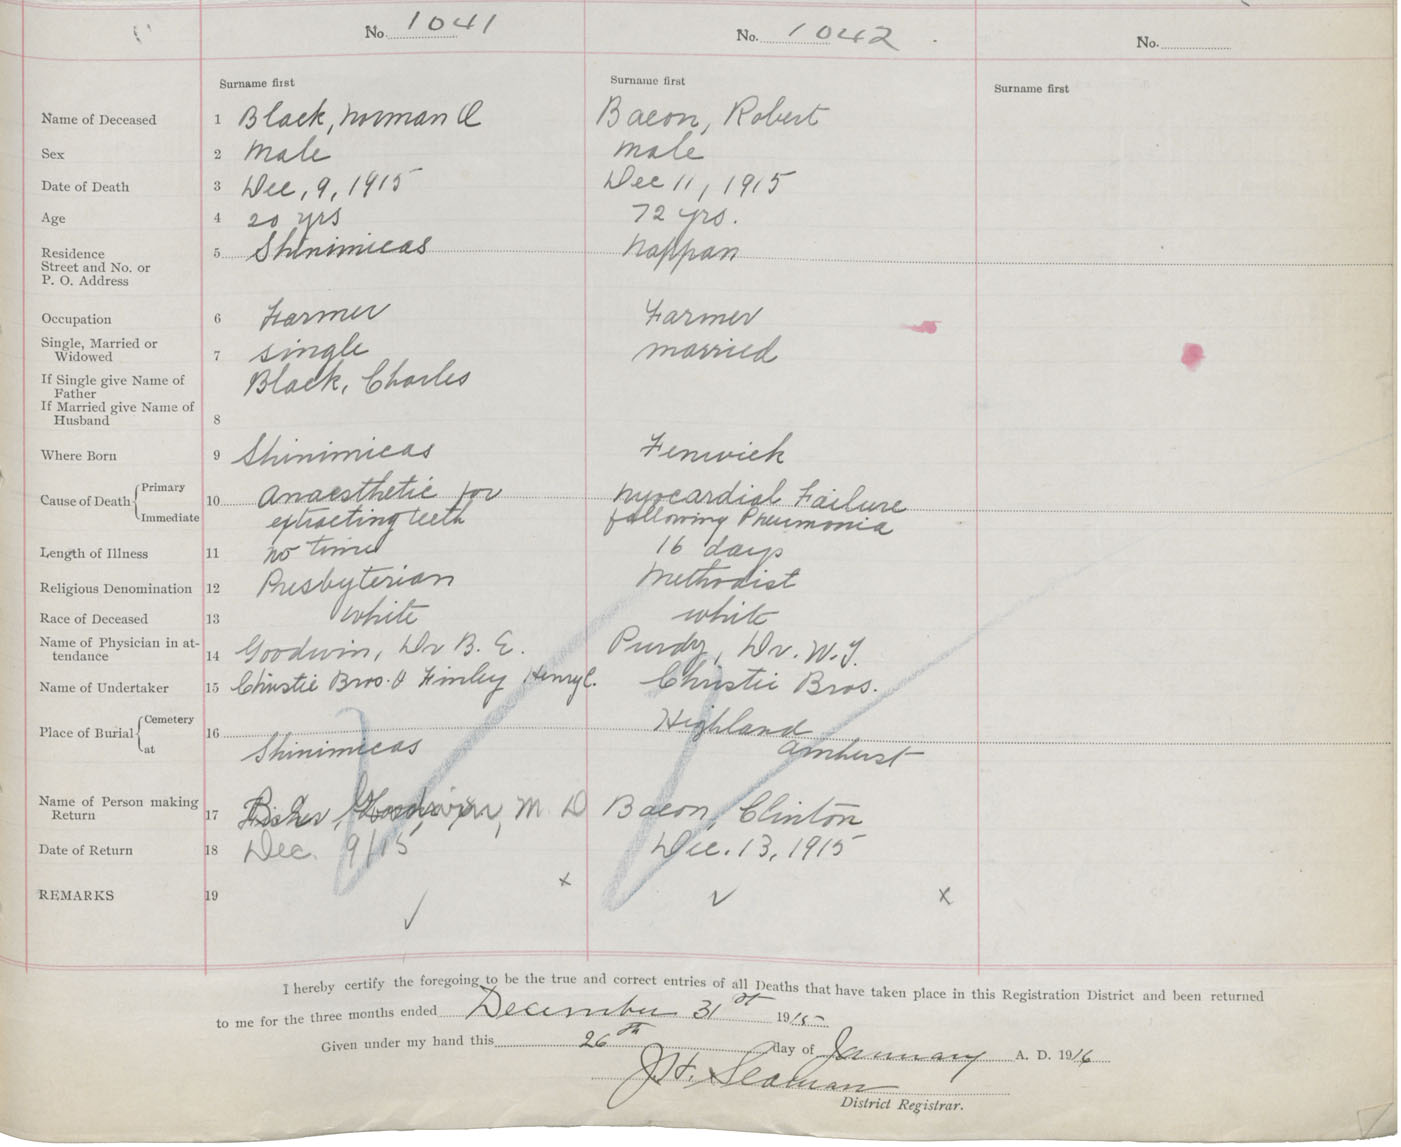 No. 1041
No. 1042
No.
Surname first
Surname first
Surname first
Name of Deceased 1 Black, Norman A Bacon, Robert
Sex 2 Male male
Date of Death 3 Dec, 9, 1915 Dec 11, 1915
Age 4 20 yrs 72 yrs.
Residence 5 Shinimicas Nappan
Street and No. or
P. O. Address
Occupation 6 Farmer Farmer
Single, Married or
Widowed 7 single married
If Single give Name of Black, Charles
Father
If Married give Name of
Husband 8
Where Born 9 Shinimicas Fenwick
Cause of Death { Primary 10 Anaesthetic for myocardial Failure
Immediate extracting teeth following Pneumonia
Length of Illness 11 no time 16 days
Religious Denomination 12 Presbyterian Methodist
Race of Deceased 13 white white
Name of Physician in at-
tendance 14 Goodwin, Dr B. E. Purdy, Dr. W. T.
Name of Undertaker 15 Christie Bros. & Finley Henry C. Christie Bros.
Place of Burial { Cemetery 16 Highland
at Shinimicas Amherst
Name of Person making
Return 17 Goodwin, M. D Bacon, Clinton
Date of Return 18 Dec. 9/15 Dec. 13, 1915
REMARKS 19 x x
I hereby certify the foregoing to be the true and correct entries of all Deaths that have taken place in this Registration District and been returned
to me for the three months ended December 31st 1915
Given under my hand this 26th day of January A. D. 1916
J. H. Seaman
District Registrar.